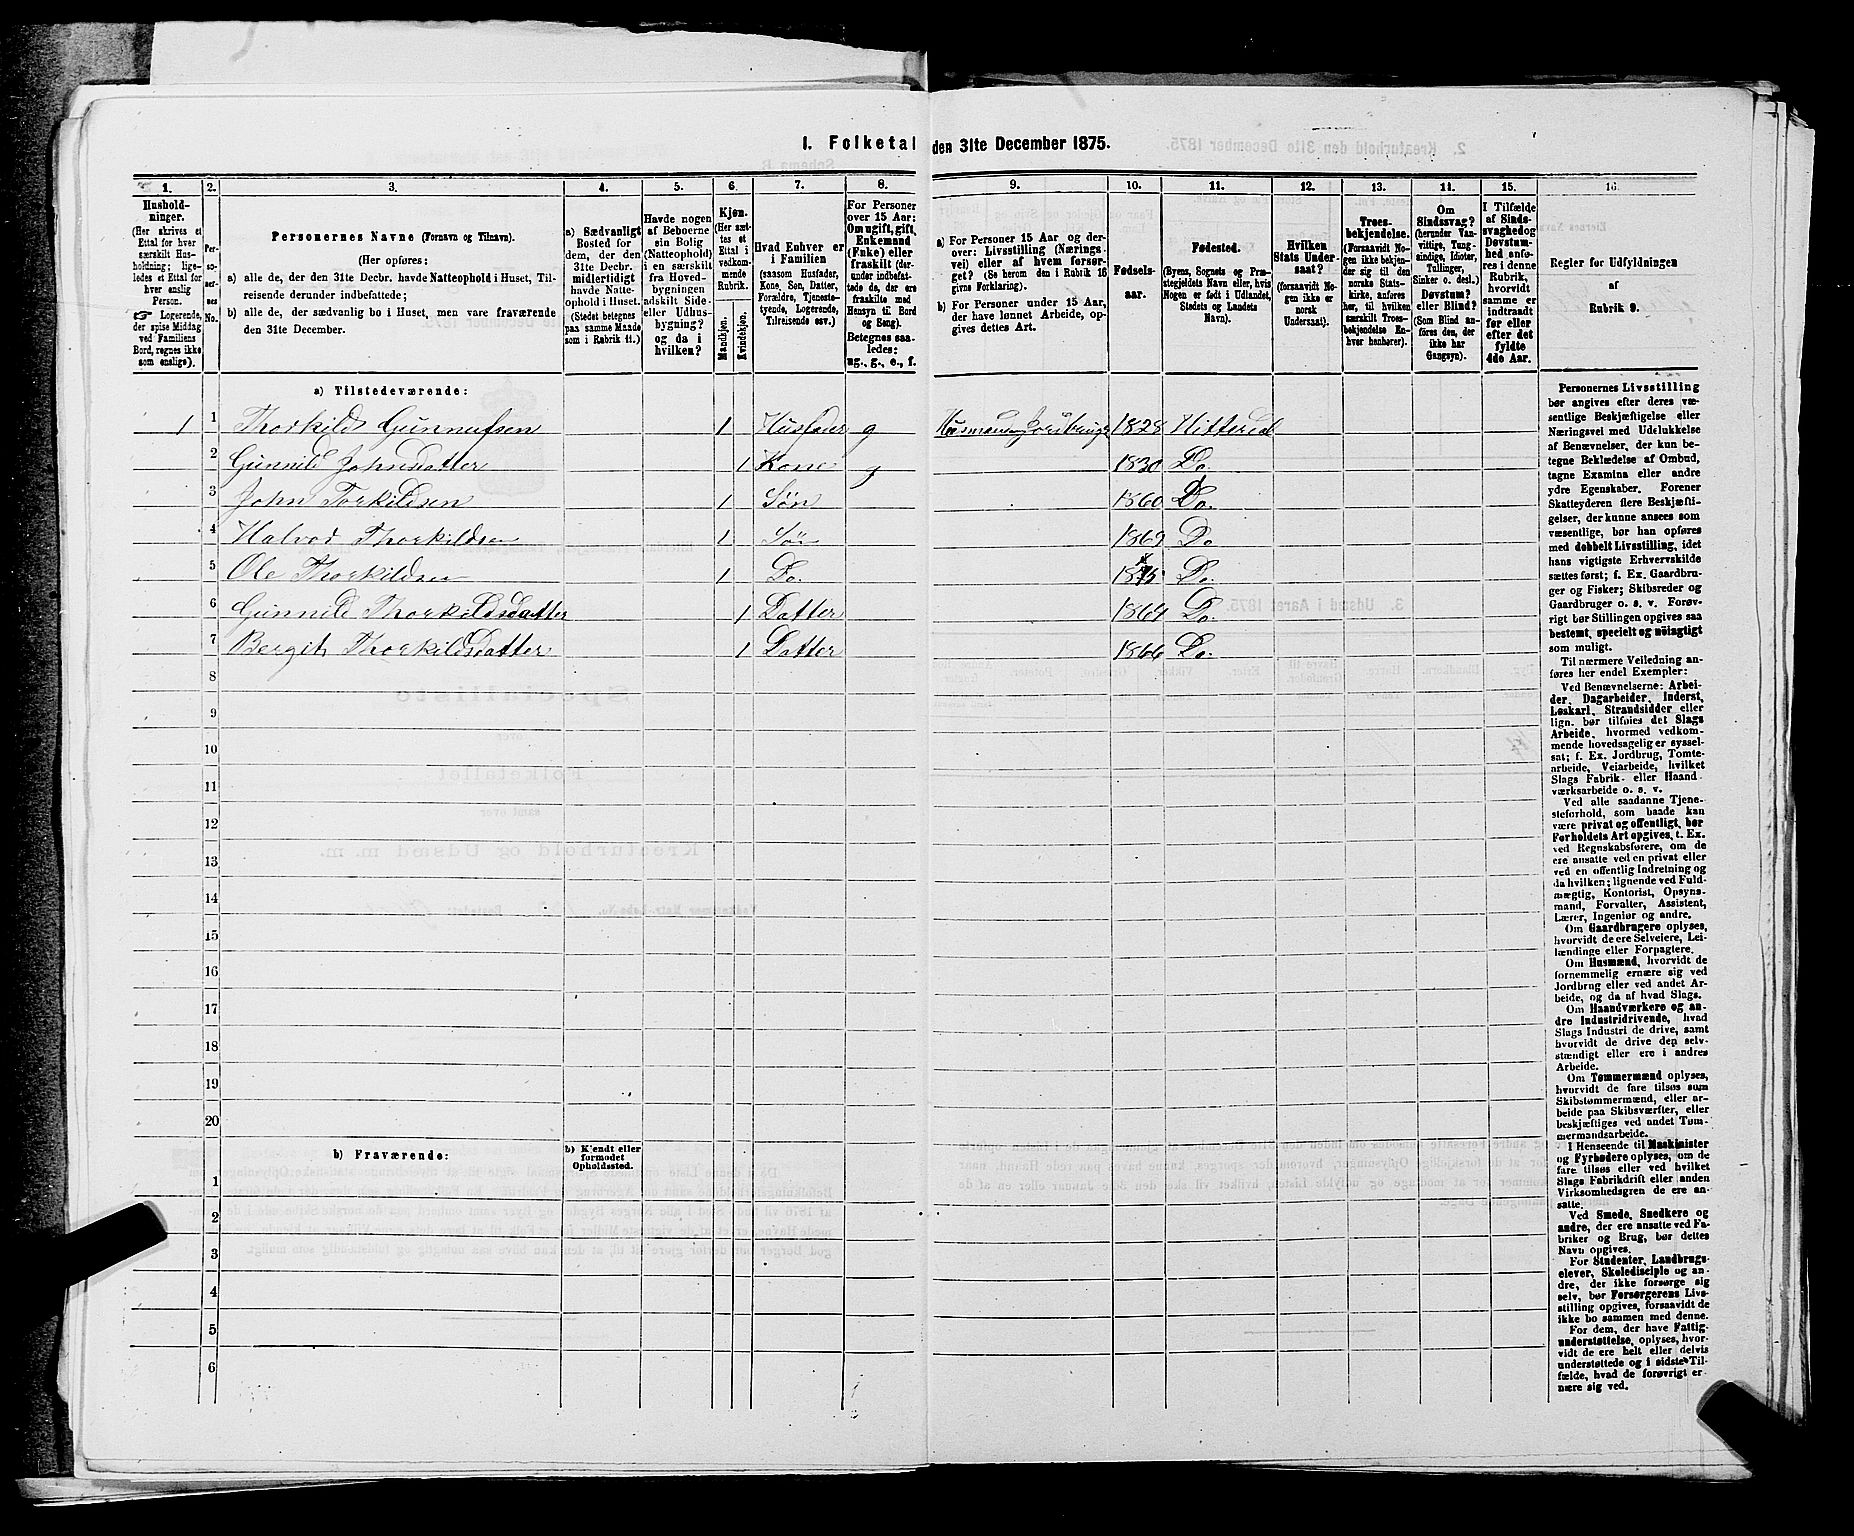 1. Folketal den 31te December 1875.
1. 2. 3. 4. 5. 6. 7. 8. 9. 10. 11. 12. 13. 14. 15. 16.
Hushold-
ninger.
(Her skrives et
Ettal for hver
særskilt Hus-
holdning; lige-
ledes et Ettal for
hver enslig
Person.
☞ Logerende,
der spise Middag
ved Familiens
Bord, regnes ikke
som enslige).
Per-
so-
ner-
nes
No.
Personernes Navne (Fornavn og Tilnavn).
(Her opføres:
a) alle de, der den 31te Decbr. havde Natteophold i Huset, Til-
reisende derunder indbefattede;
b) alle de, der sædvanlig bo i Huset, men vare fraværende
den 31te December.
a) Sædvanligt
Bosted for
dem, der den
31te Decbr.
midlertidigt
havde Natte-
ophold i Huset.
(Stedet betegnes
paa samme Maade
som i Rubrik 11.)
Havde nogen
af Beboerne
sin Bolig
(Natteophold)
i en særskilt
fra Hoved-
bygningen
adskilt Side-
eller Udhus-
bygning?
og da i
hvilken?
Kjøn.
(Her sæt-
tes et
Ettal i
vedkom-
mende
Rubrik.
Mandkjøn.
Kvindekjøn.
Hvad Enhver er
i Familien
(saasom Husfader,
Kone, Søn, Datter,
Forældre, Tjeneste-
tyende, Logerende,
Tilreisende osv.)
For Personer
over 15 Aar:
Om ugift, gift,
Enkemand
(Enke) eller
fraskilt (der-
under indbefat-
tede de, der ere
fraskilte med
Hensyn til Bord
og Seng).
Betegnes saa-
ledes:
ug., g., e., f.
a) For Personer 15 Aar og der-
over: Livsstilling (Nærings-
vei) eller af hvem forsør-
get? (Se herom den i Rubrik 16
givne Forklaring).
b) For Personer under 15 Aar,
der have lønnet Arbeide, op-
gives dettes Art.
Fødsels-
aar.
Fødested.
(Byens, Sognets og Præ-
stegjeldets Navn eller, hvis
Nogen er født i Udlandet,
Stedets og Landets
Navn).
Hvilken
Stats Under-
saat?
(forsaavidt No-
gen ikke er
norsk
Undersaat).
Troes-
bekjendelse.
(Forsaavidt No-
gen ikke bekjen-
der sig til den
norske Stats-
kirke, anføres
her, til hvilken
særskilt Troes-
bekjendelse En-
hver henhører).
Om
Sindssvag?
(herunder Van-
vittige, Tung-
sindige, Idioter,
Tullinger,
Sinker o. desl.)
Døvstum?
eller Blind?
(Som Blind an-
føres den, der
ikke har
Gangsyn).
I Tilfælde
af Sinds-
svaghed og
Døvstum-
hed anfø-
res i denne
Rubrik,
hvorvidt
samme er
indtraadt
før eller
efter det
fyldte
4de Aar.
Regler for Udfyldningen
af
Rubrik 9.
a) Tilstedeværende:
1 1 Thorkild Gunnufsen 1 Husfader g Husmand Jordbruger 1828 Hitterdal
2 Gunnild Johnsdatter 1 Kone g 1830 Do.
3 John Torkildsen 1 Søn 1860 Do.
4 Halvod Thorkildsen 1 Søn 1869 Do
5 Ole Thorkildsen 1 Do. 1875 Do.
6 Gunnild Thorkildsdatter 1 Datter 1864 Do.
7 Bergit Thorkildsdatter 1 Datter 1866 Do.
8
9
10
11
12
13
14
15
16
17
18
19
20
b) Fraværende:
b) Kjendt eller
formodet
Opholdssted.
1
2
3
4
5
6
Personernes Livsstilling
bør angives efter deres væ-
sentlige Beskjæftigelse eller
Næringsvei med Udelukkelse
af Benævnelser, der kun be-
tegne Beklædelse af Ombud,
tagne Examina eller andre
ydre Egenskaber. Forener
Skatteyderen flere Beskjæfti-
gelser, der kunne ansees som
væsentlige, bør han opføres
med dobbelt Livsstilling, idet
hans vigtigste Erhvervskilde
sættes først; f. Ex. Gaardbru-
ger og Fisker; Skibsreder og
Gaardbruger o. s. v. Forøv-
rigt bør Stillingen opgives saa
bestemt, specielt og nöiagtigt
som muligt.
Til nærmere Veiledning an-
føres her endel Exempler:
Ved Benævnelserne: Arbei-
der, Dagarbeider, Inderst,
Løskarl, Strandsidder eller
lign. bør tilføies det Slags
Arbeide, hvormed vedkom-
mende hovedsagelig er syssel-
sat; f. Ex. Jordbrug, Tomte-
arbeide, Veiarbeide, hvilket
Slags Fabrik- eller Haand-
værksarbeide o. s. v.
Ved alle saadanne Tjene-
steforhold, som baade kan
være privat og offentligt, bør
Forholdets Art opgives, t. Ex.
ved Regnskabsførere, om de
ere ansatte ved en privat eller
ved en offentlig Indretning og
da hvilken; lignende ved Fuld-
mægtig, Kontorist, Opsyns-
mand, Forvalter, Assistent,
Lærer, Ingeniør og andre.
Om Gaardbrugere oplyses,
hvorvidt de ere Selveiere, Lei-
lændinge eller Forpagtere.
Om Husmænd, hvorvidt de
fornemmelig ernære sig ved
Jordbrug eller ved andet Ar-
beide, og da af hvad Slags.
Om Haandværkere og an-
dre Industridrivende, hvad
Slags Industri de drive, samt
hvorvidt de drive den selv-
stændigt eller ere i andres
Arbeide.
Om Tømmermænd oplyses,
hvorvidt de fare tilsøs som
Skibstømmermænd, eller ar-
beide paa Skibsværfter, eller
beskjæftiges ved andet Tøm-
mermandsarbeide.
I Henseende til Maskinister
og Fyrbødere oplyses, om de
fare tilsøs eller ved hvilket
Slags Fabrikdrift eller anden
Virksomhedsgren de ere an-
satte.
Ved Smede, Snedkere og
andre, der ere ansatte ved Fa-
briker og Brug, bør dettes
Navn opgives.
For Studenter, Landbrugs-
elever, Skoledisciple og an-
dre, der ikke forsørge sig
selv, bør Forsørgerens Livs-
stilling opgives, forsaavidt de
ikke bo sammen med denne.
For dem, der have Fattig-
understøttelse, oplyses, hvor-
vidt de ere helt eller delvis
understøttede og i sidste Til-
fælde, hvad de forøvrigt er-
nære sig ved.